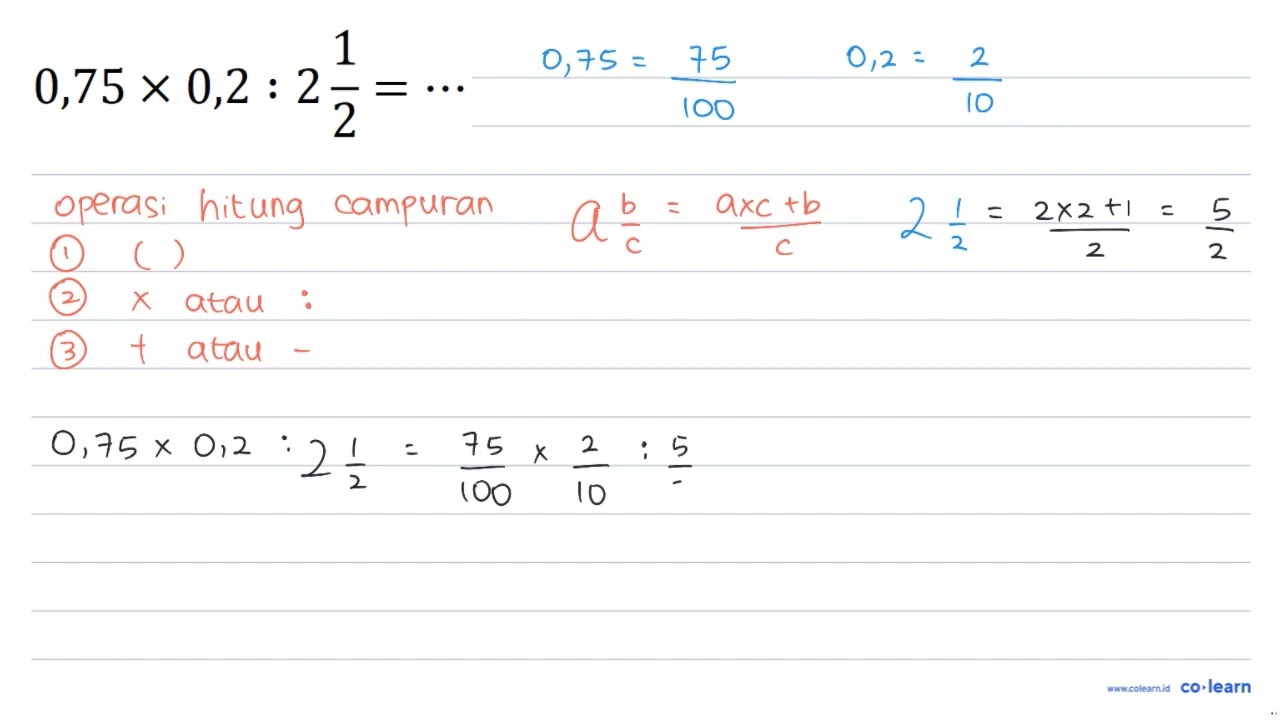 0,75 × 0,2 : 2 1/2 = ⋯
0,75 = 75/100 0,2 = 2/10
operasi hitung campuran
a b/c = axc+b/c 2 1/2 = 2x2+1/2 = 5/2
① ( )
② x atau :
③ + atau -
0,75 x 0,2 : 2 1/2 = 75/100 x 2/10 : 5/
www.colearn.id co·learn